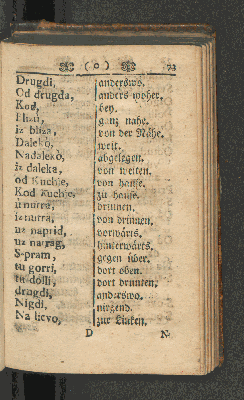 ( o ) 73
Drugdi, anderswo.
Od drugda, anders woher.
Kod, bey.
Blizu, ganz nahe.
iz bliza, von der Nähe.
Daleko, weit.
Nadaleko, abgelegen.
iz daleka, von weiten.
od Kuchje, von hause.
Kod Kuchje, zu hause.
u nutra, drinnen.
iz nutra, von drinnen.
uz naprid, vorwärts.
uz natrag, hinterwärts.
S-pram, gegen über.
tu gorri, dort oben.
tu dolli, dort drunten.
drugdi, anderswo.
Nigdi, nirgend.
Na lievo, zur Linken.
D N